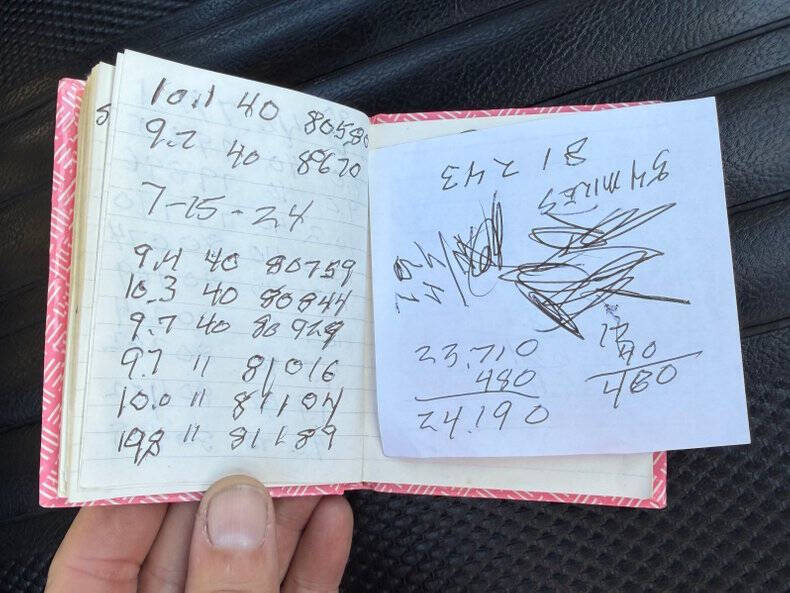 10.1 40 80580
9.2 40 80670
7-15-24
9.4 40 80759
10.3 40 80844
9.7 40 80929
9.7 " 81016
10.0 " 81104
" 81189
81243
54 MILES
23.710
480
24.190
40
480